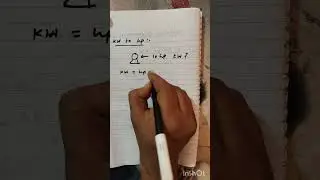 KW to hp :-
10 hp KW ?
KW = hp
InShOt